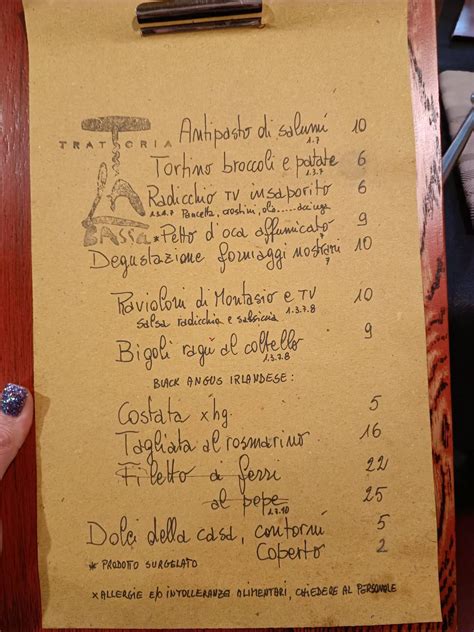 TRATTORIA
LA
BASSA
Antipasto di salumi 10
1.7
Tortino broccoli e patate 6
1.3.7
Radicchio TV insaporito 6
1.3.6.7 Pancetta, crostini, olio.....acciuga
*Petto d'oca affumicato 9
7
Degustazione formaggi nostrani 10
7
Ravioloni di Montasio e TV 10
salsa radicchio e salsiccia 1.3.7.8
Bigoli ragù al coltello 9
1.3.7.8
BLACK ANGUS IRLANDESE:
Costata x hg. 5
Tagliata al rosmarino 16
Filetto ai ferri 22
al pepe 25
1.7.10
Dolci della casa, contorni 5
Coperto 2
* PRODOTTO SURGELATO
x ALLERGIE E/O INTOLLERANZE ALIMENTARI, CHIEDERE AL PERSONALE